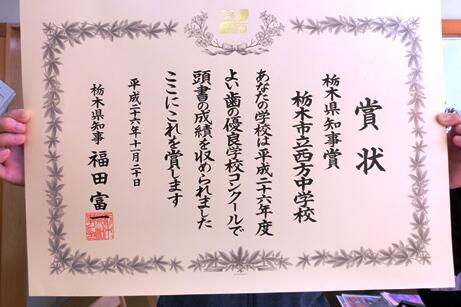 賞状
栃木県知事賞
栃木市立西方中学校
あなたの学校は平成二十六年度
よい歯の優良学校コンクールで
頭書の成績を収められました
ここにこれを賞します
平成二十六年十一月二十日
栃木県知事 福田富一